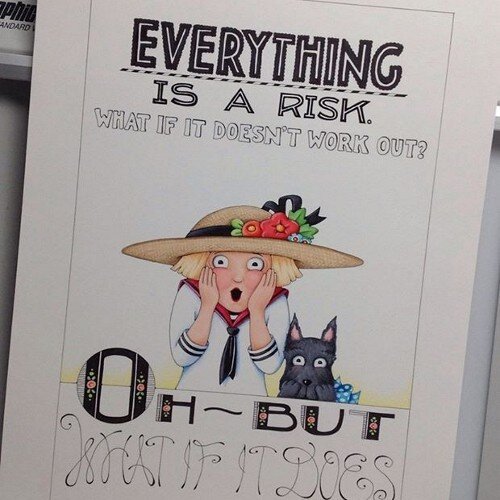 EVERYTHING
IS A RISK.
WHAT IF IT DOESN'T WORK OUT?
OH~BUT
WHAT IF IT DOES